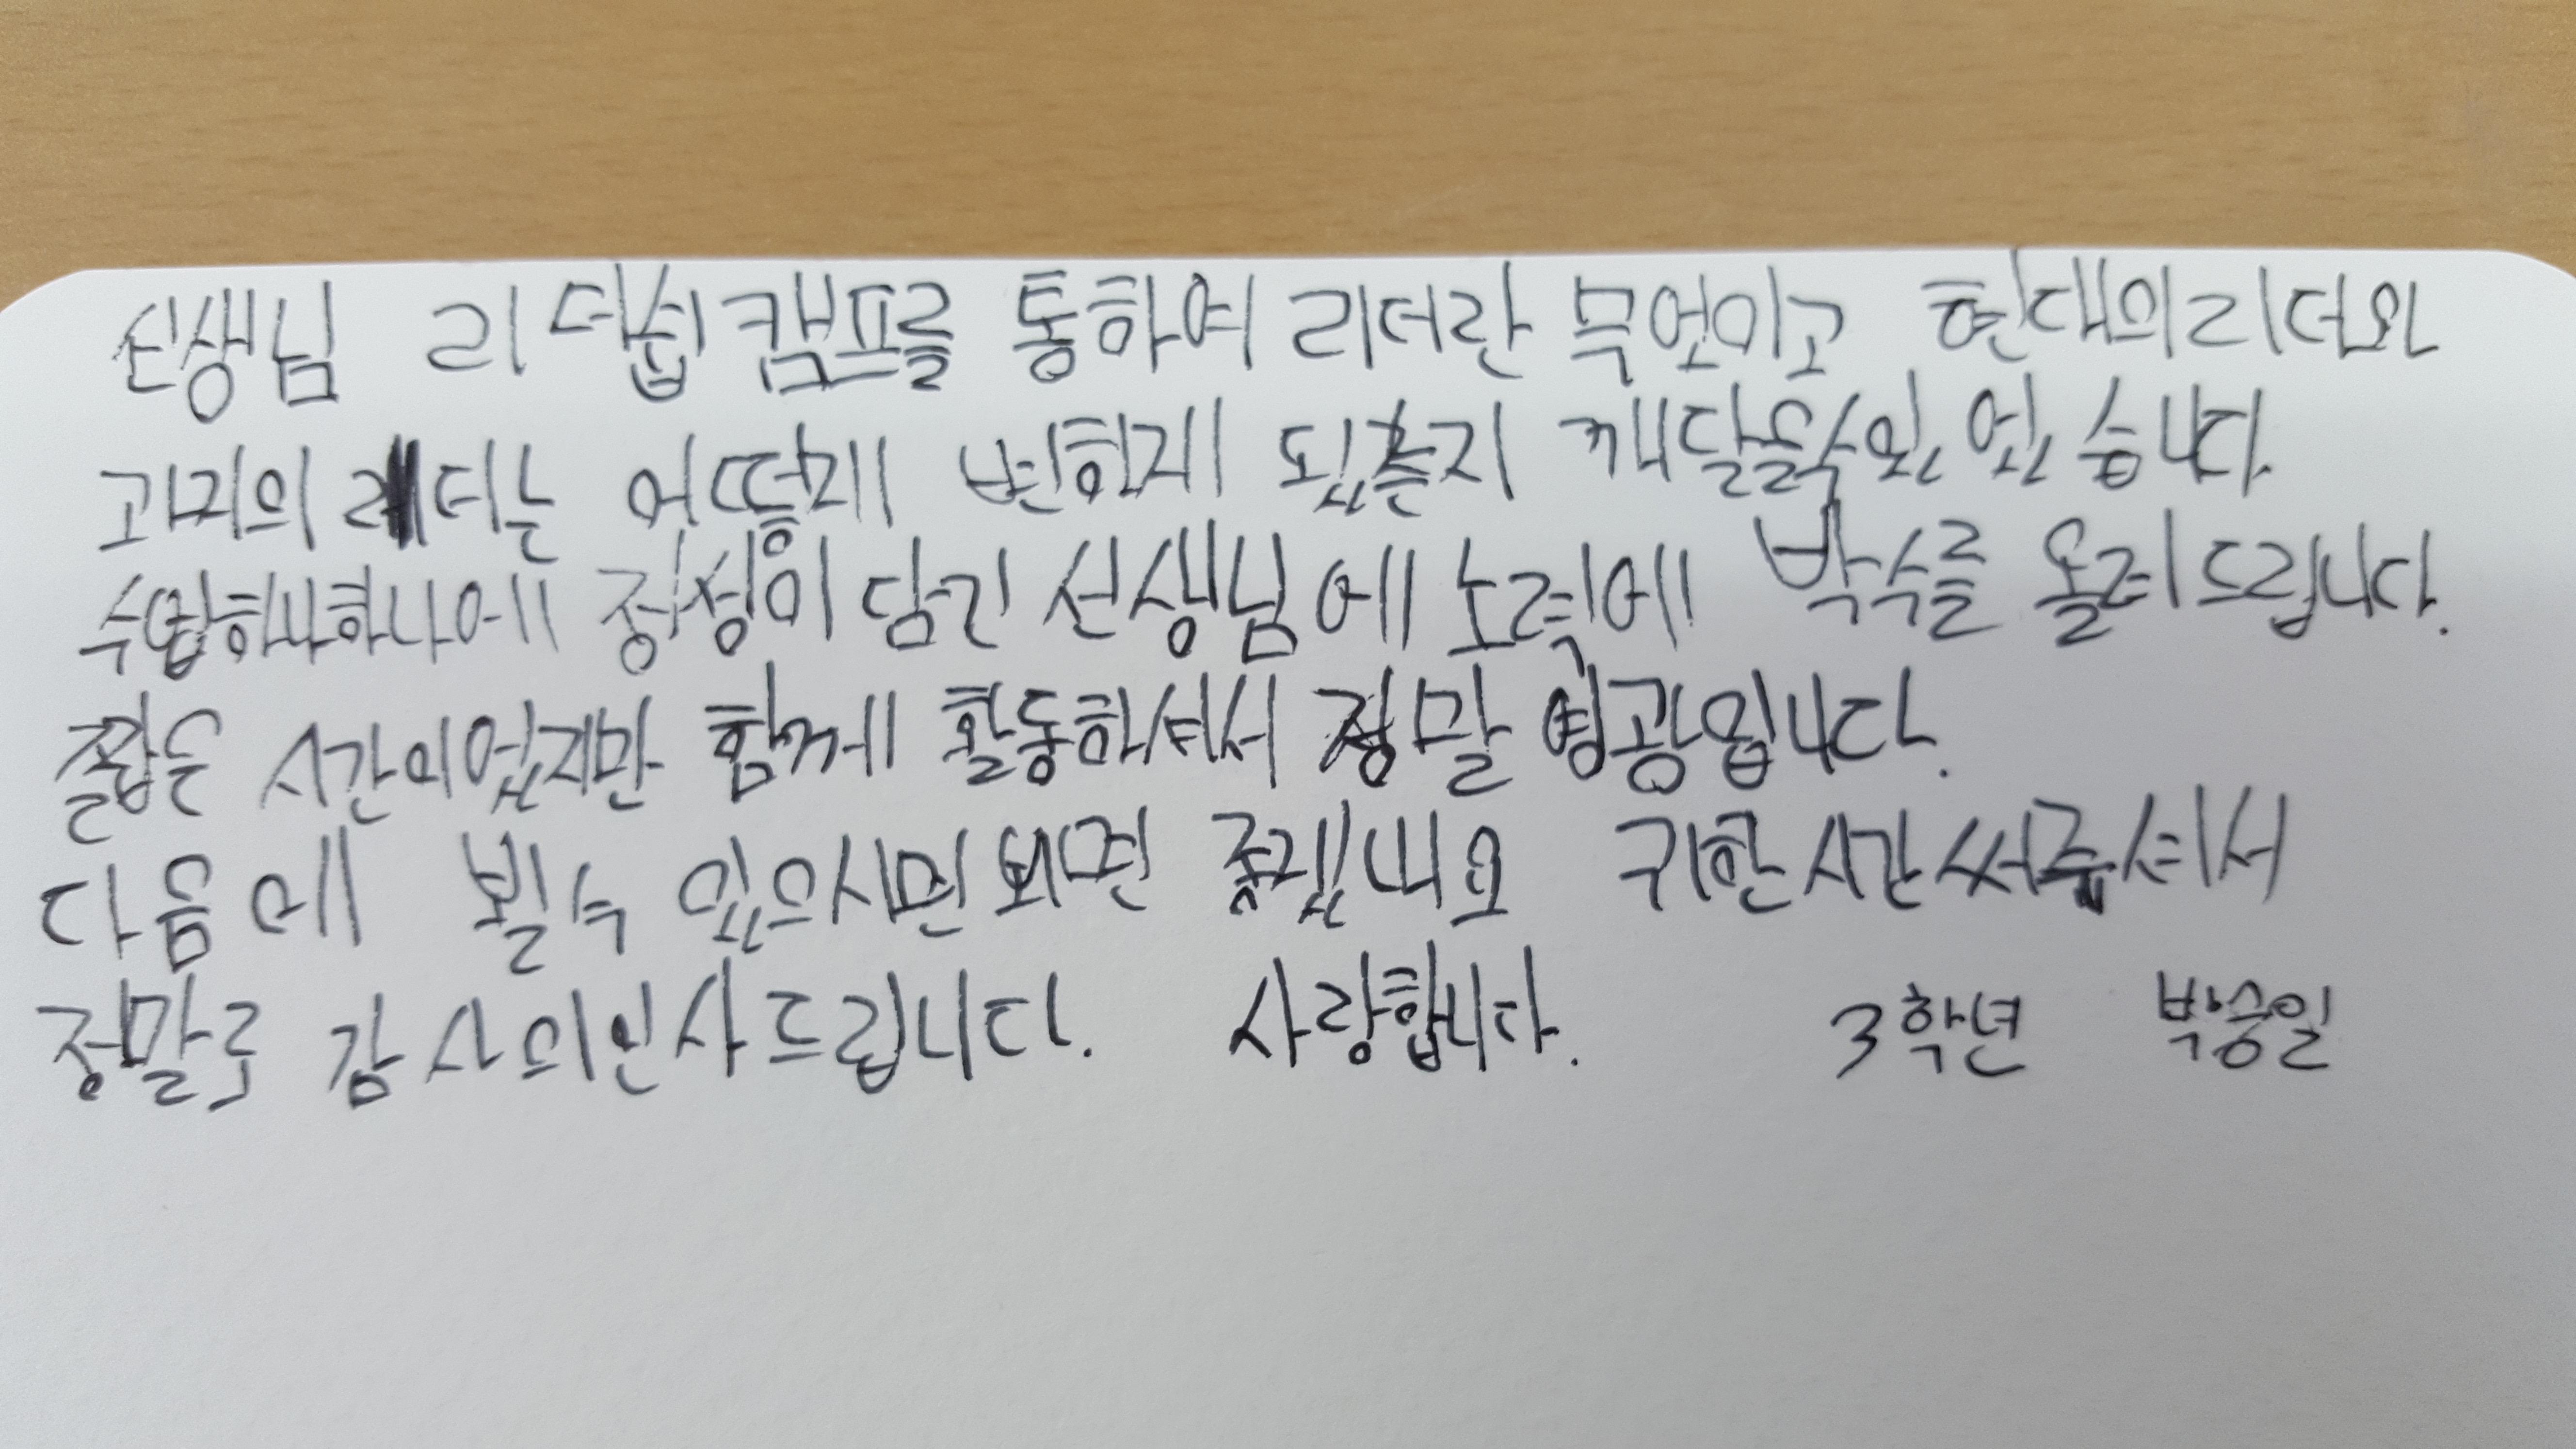 선생님 리더쉽캠프를 통하여 리더란 무엇이고 현대의리더와
과거의 리더는 어떻게 변한지 됬는지 깨달을수있었습니다
수업하나하나에 정성이 담긴 선생님에 노력에 박수를 올려드립니다.
짧은 시간이였지만 함께 활동하셔서 정말 영광입니다.
다음에 뵐수 있으시면 뵈면 좋겠내요 귀한시간써주셔서
정말로 감사의인사드립니다. 사랑합니다. 3학년 박승일